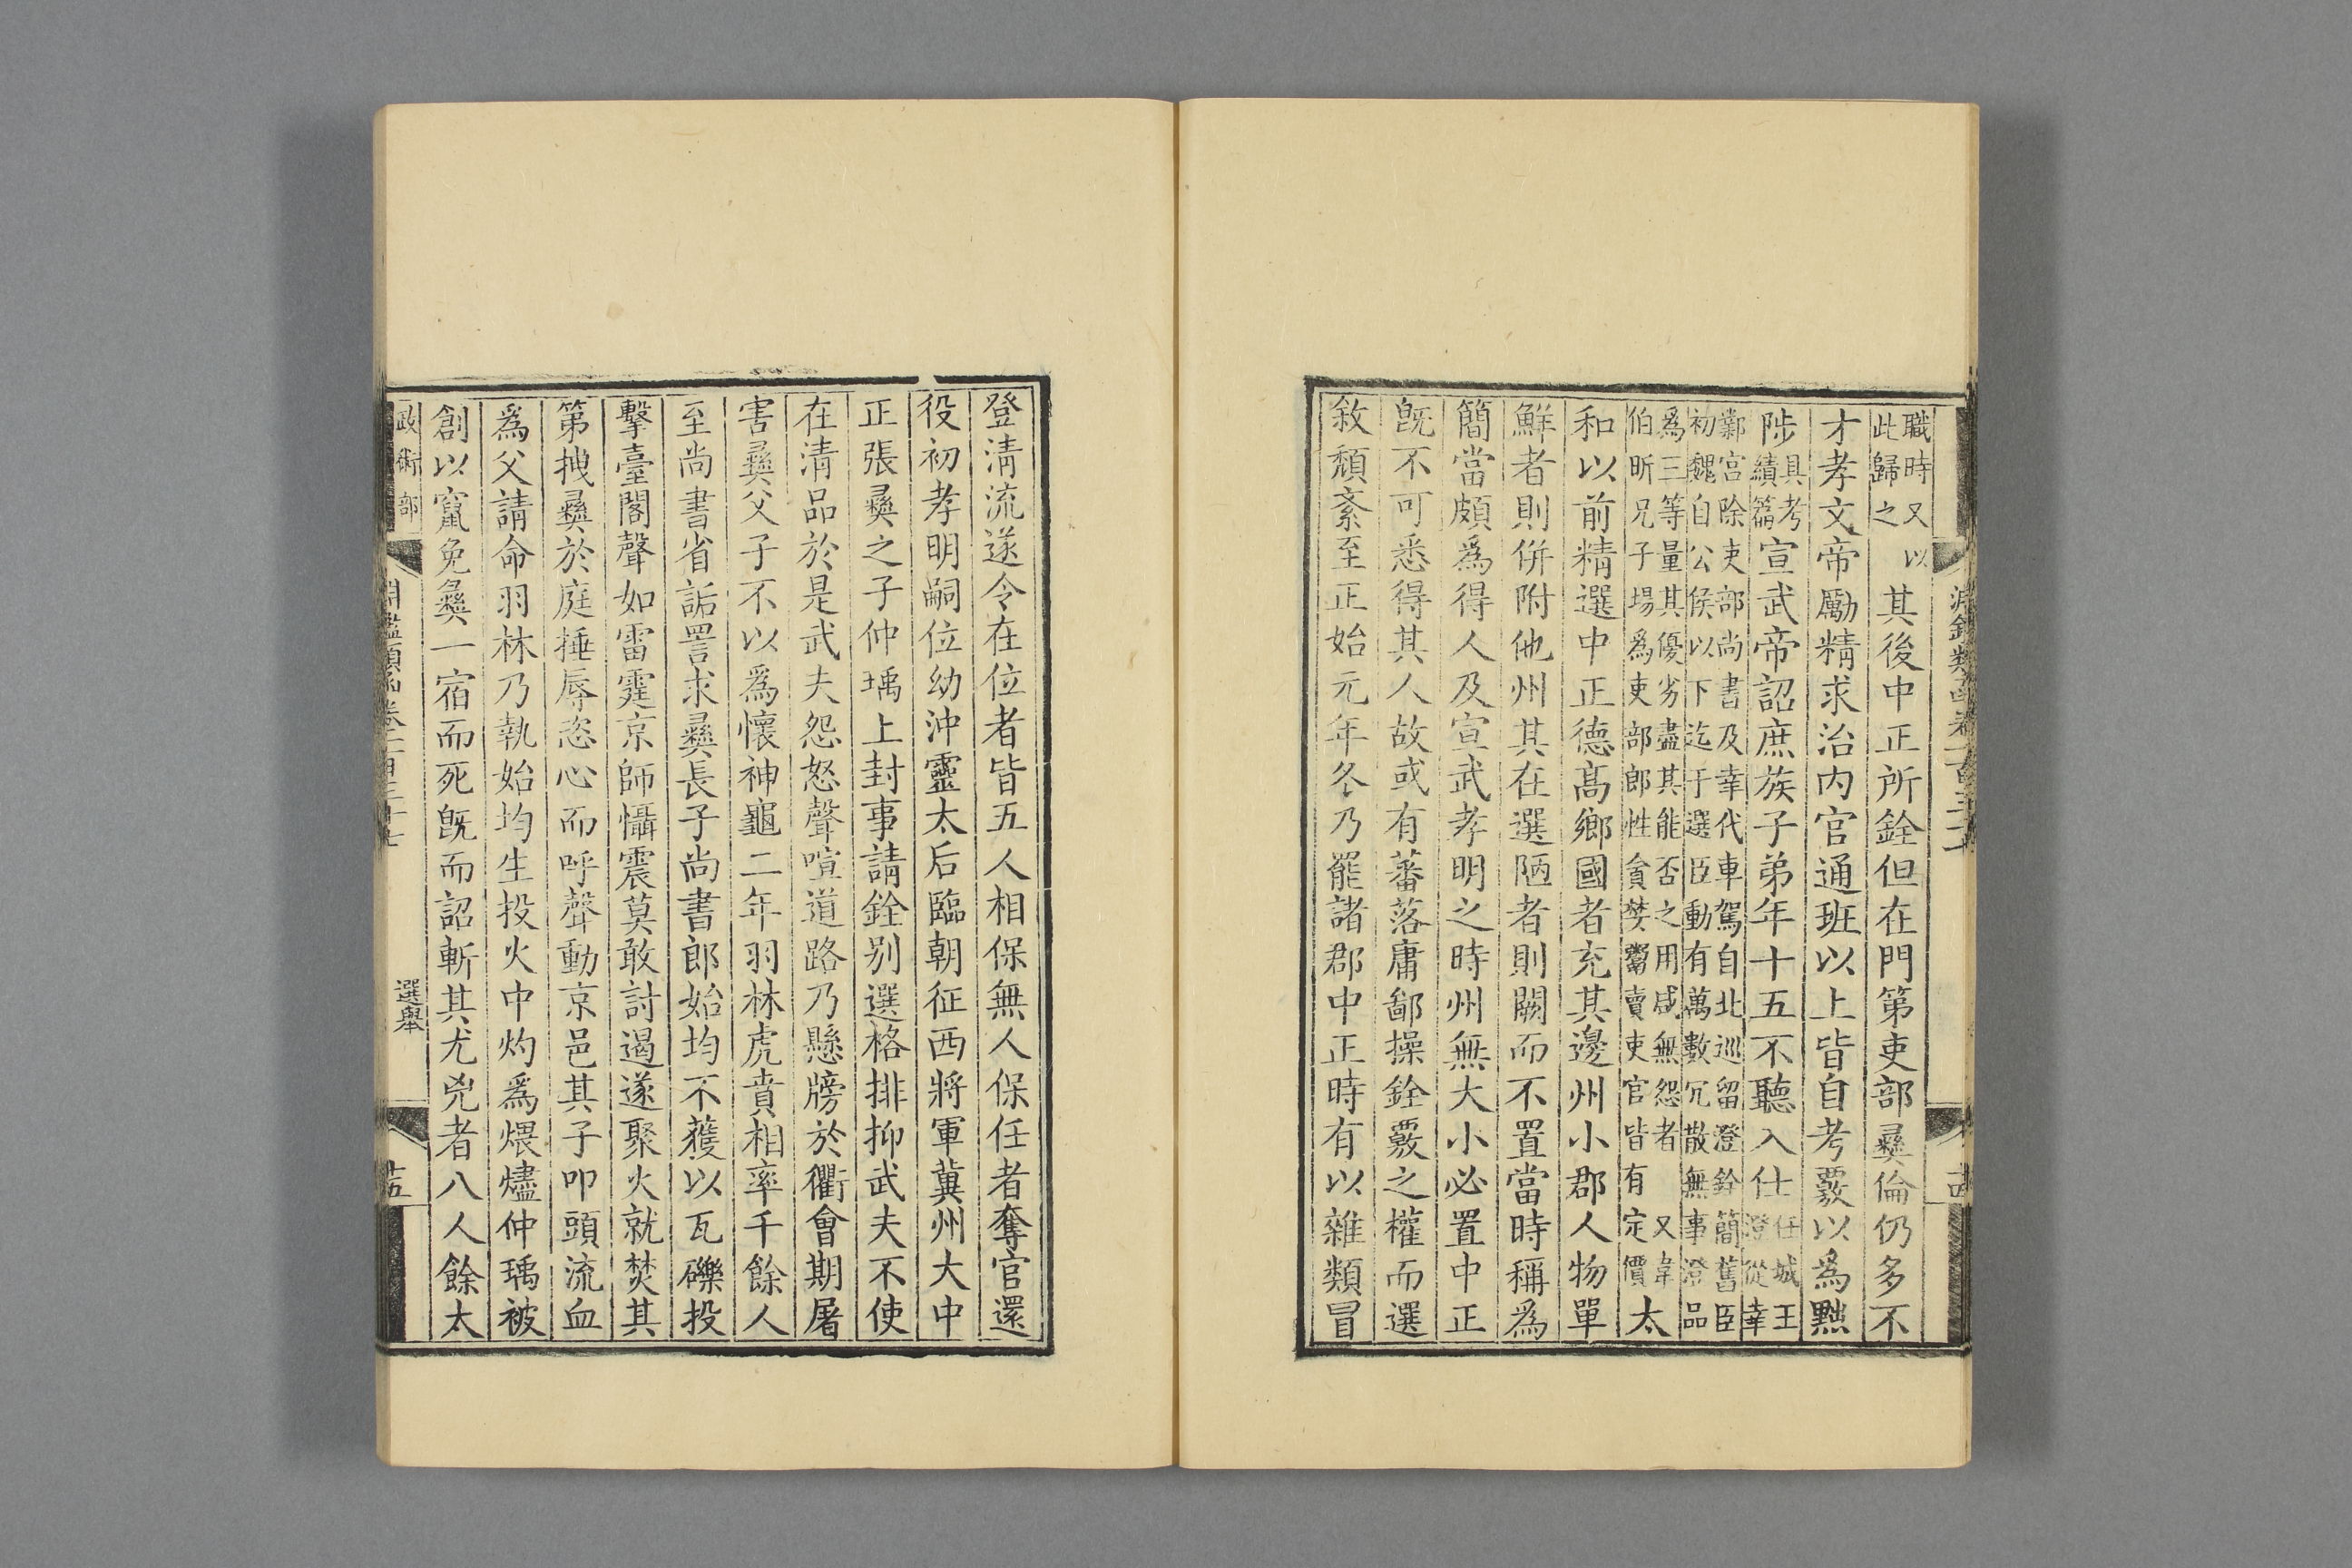 職時又以
此歸之
其後中正所銓但在門第吏部彞倫仍多不
才孝文帝勵精求治内官通班以上皆自考覈以爲黜
陟
具考
績篇
宣武帝詔庶族子弟年十五不聽入仕
任城王
澄從幸
鄴宮除吏部尚書及幸代車駕自北巡留澄銓簡舊臣
初魏自公侯以下迄于選臣動有萬數冗散無事澄品
爲三等量其優劣盡其能否之用咸無怨者又韋
伯昕兄子場爲吏部郎性貪婪鬻賣吏官皆有定價
太
和以前精選中正德高鄉國者充其邊州小郡人物單
鮮者則併附他州其在選陋者則闕而不置當時稱爲
簡當頗爲得人及宣武孝明之時州無大小必置中正
旣不可悉得其人故或有蕃落庸鄙操銓覈之權而選
敘頹紊至正始元年冬乃罷諸郡中正時有以雜類冒
登清流遂令在位者皆五人相保無人保任者奪官還
役初孝明嗣位幼沖靈太后臨朝征西將軍冀州大中
正張彞之子仲瑀上封事請銓别選格排抑武夫不使
在清品於是武夫怨怒聲喧道路乃懸牓於衢會期屠
害彞父子不以爲懷神龜二年羽林虎賁相率千餘人
至尚書省詬詈求彞長子尚書郎始均不獲以瓦礫投
擊臺閣聲如雷霆京師懾震莫敢討遏遂聚火就焚其
第拽彞於庭捶辱恣心而呼聲動京邑其子叩頭流血
爲父請命羽林乃執始均生投火中灼爲煨燼仲瑀被
創以竄免彞一宿而死旣而詔斬其尤兇者八人餘太
政術部
淵鑑類函卷一百三十七
選舉
十五